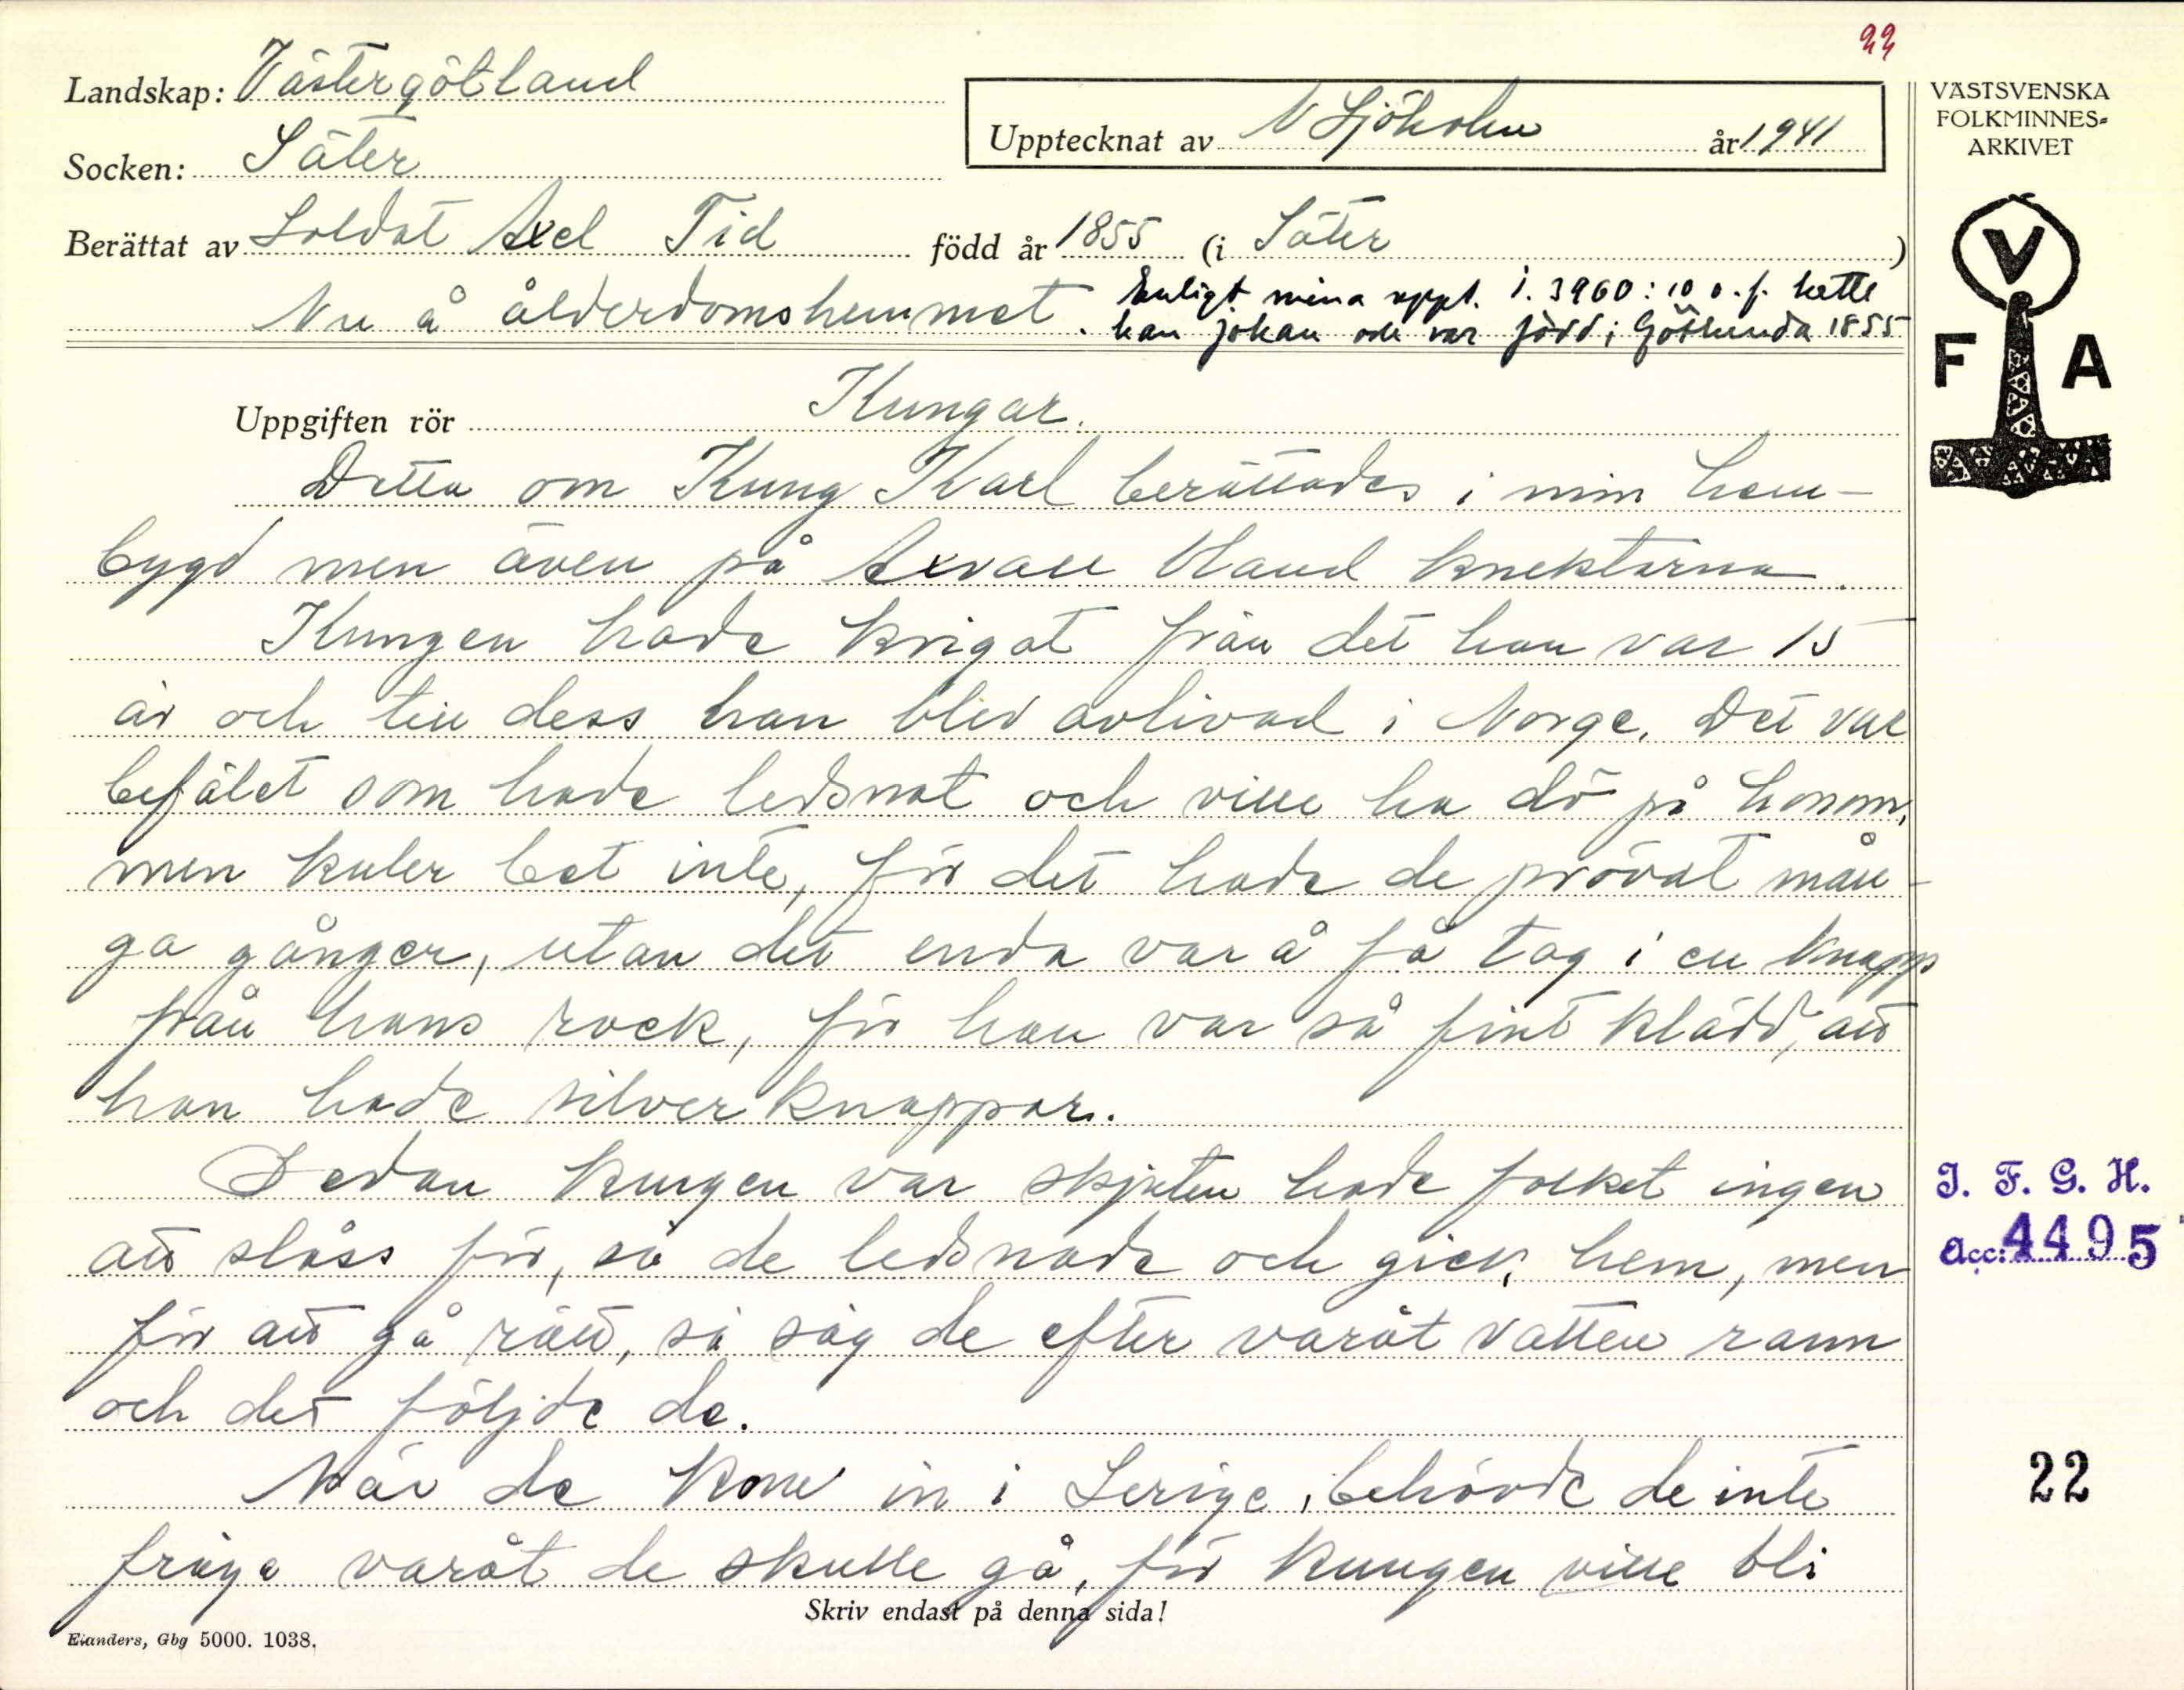 22
Landskap: Västergötland
Socken: Säter
Upptecknat av N Sjöholm år 1941
Berättat av Soldat Axel Tid född år 1855 (i Säter)
Nu å ålderdomshemmet.
Enligt mina uppt. i. 3960: 10 o. f. hette
han Johan och var född i Götlunda 1855
Uppgiften rör Kungar.
Detta om Kung Karl berättades i min hem-
bygd men även på Axvall bland knektarna.
Kungen hade krigat från det han var 15
år och till dess han blev avlivad i Norge. Det var
befälet som hade ledsnat och ville ha dö på honom,
men kuler bet inte, för det hade de prövat mån-
ga gånger, utan det enda var å få tag i en knapp
från hans rock, för han var så fint klädd, att
han hade silverknappar.
Sedan kungen var skjuten hade folket ingen
att slåss för, så de ledsnade och gick hem, men
för att gå rätt, så såg de efter varåt vatten rann
och det följde de.
När de kom in i Sverige, behövde de inte
fråga varåt de skulle gå, för kungen ville bli
Skriv endast på denna sida!
Elanders, Gbg 5000. 1038.
VÄSTSVENSKA
FOLKMINNES=
ARKIVET
V
F A
I. F. G. H.
Acc: 4495
22